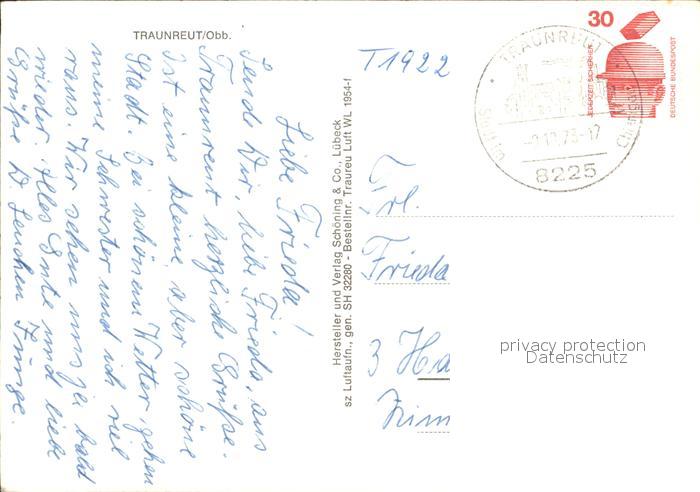 TRAUNREUT/Obb.
Liebe Frieda!
Sende Dir, liebe Frieda, aus
Traunreut herzliche Grüße.
Ist eine kleine, aber schöne
Stadt. Bei schönem Wetter gehen
meine Schwester und ich viel
raus. Wir sehen uns ja bald
wieder. Alles Gute und liebe
Grüße D. Lenchen
Hersteller und Verlag Schöning & Co., Lübeck
sz Luftaufn., gen. SH 32280 - Bestellnr. Traureu Luft WL 1954-f
T1922
30
JEDERZEIT SICHERHEIT
DEUTSCHE BUNDESPOST
TRAUNREUT
73-17
8225
Frl.
Frieda
3 Ha
privacy protection
Datenschutz